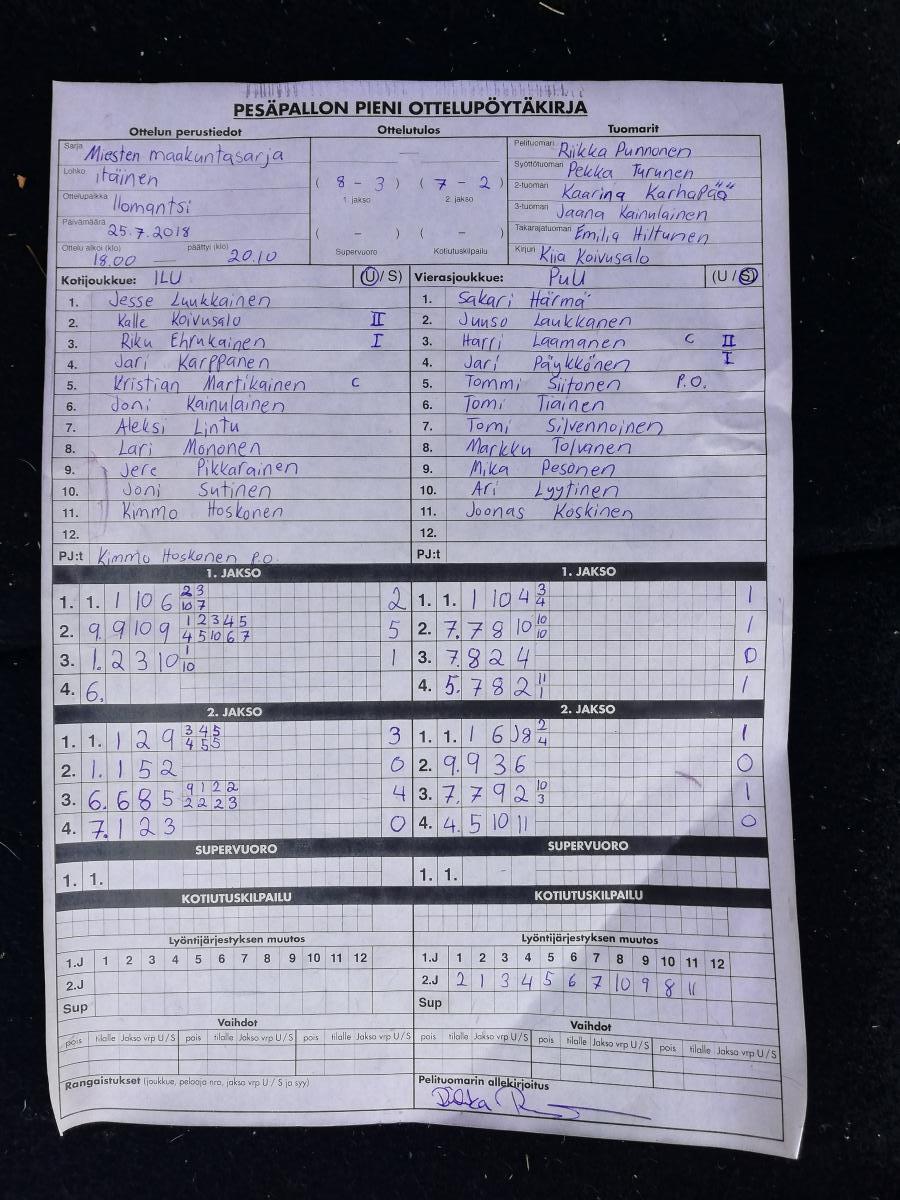 PESÄPALLON PIENI OTTELUPÖYTÄKIRJA
Ottelun perustiedot Ottelutulos Tuomarit
Sarja Miesten maakuntasarja
Lohko itäinen
Ottelupaikka Ilomantsi
Päivämäärä 25.7.2018
Ottelu alkoi (klo) päättyi (klo)
18.00 — 20.10
—
( 8 - 3 ) ( 7 - 2 )
1. jakso 2. jakso
( - ) ( - )
Supervuoro Kotiutuskilpailu
Pelituomari Riikka Punnonen
Syöttötuomari Pekka Turunen
2-tuomari Kaarina Karhapää
3-tuomari Jaana Kainulainen
Takarajatuomari Emilia Hiltunen
Kirjuri Kiia Koivusalo
Kotijoukkue: ILU (U / S)
1. Jesse Luukkainen
2. Kalle Koivusalo II
3. Riku Ehrukainen I
4. Jari Karppanen
5. Kristian Martikainen C
6. Joni Kainulainen
7. Aleksi Lintu
8. Lari Mononen
9. Jere Pikkarainen
10. Joni Sutinen
11. Kimmo Hoskonen
12.
PJ:t Kimmo Hoskonen P.O.
Vierasjoukkue: PuU (U / S)
1. Sakari Härmä
2. Juuso Laukkanen
3. Harri Laamanen C II
4. Jari Päykkönen I
5. Tommi Siitonen P.O.
6. Tomi Tiainen
7. Tomi Silvennoinen
8. Markku Tolvanen
9. Mika Pesonen
10. Ari Lyytinen
11. Joonas Koskinen
12.
PJ:t
1. JAKSO
1. 1. 1 10 6 2 3 2
10 7
2. 9. 9 10 9 1 2 3 4 5 5
4 5 10 6 7
3. 1. 2 3 10 1 1
10
4. 6.
1. JAKSO
1. 1. 1 10 4 3 1
4
2. 7. 7 8 10 10 1
10
3. 7. 8 2 4 0
4. 5. 7 8 2 11 1
1
2. JAKSO
1. 1. 1 2 9 3 4 5 3
4 5 5
2. 1. 1 5 2 0
3. 6. 6 8 5 9 1 2 2 4
2 2 2 3
4. 7. 1 2 3 0
2. JAKSO
1. 1. 1 6 8 2 1
4
2. 9. 9 3 6 0
3. 7. 7 9 2 10 1
3
4. 4. 5 10 11 0
SUPERVUORO
1. 1.
SUPERVUORO
1. 1.
KOTIUTUSKILPAILU
KOTIUTUSKILPAILU
Lyöntijärjestyksen muutos
1.J 1 2 3 4 5 6 7 8 9 10 11 12
2.J
Sup
Lyöntijärjestyksen muutos
1.J 1 2 3 4 5 6 7 8 9 10 11 12
2.J 2 1 3 4 5 6 7 10 9 8 11
Sup
Vaihdot
pois tilalle Jakso vrp U / S pois tilalle Jakso vrp U / S pois tilalle Jakso vrp U / S
Vaihdot
pois tilalle Jakso vrp U / S pois tilalle Jakso vrp U / S pois tilalle Jakso vrp U / S
Rangaistukset (joukkue, pelaaja nro, jakso vrp U / S ja syy)
Pelituomarin allekirjoitus